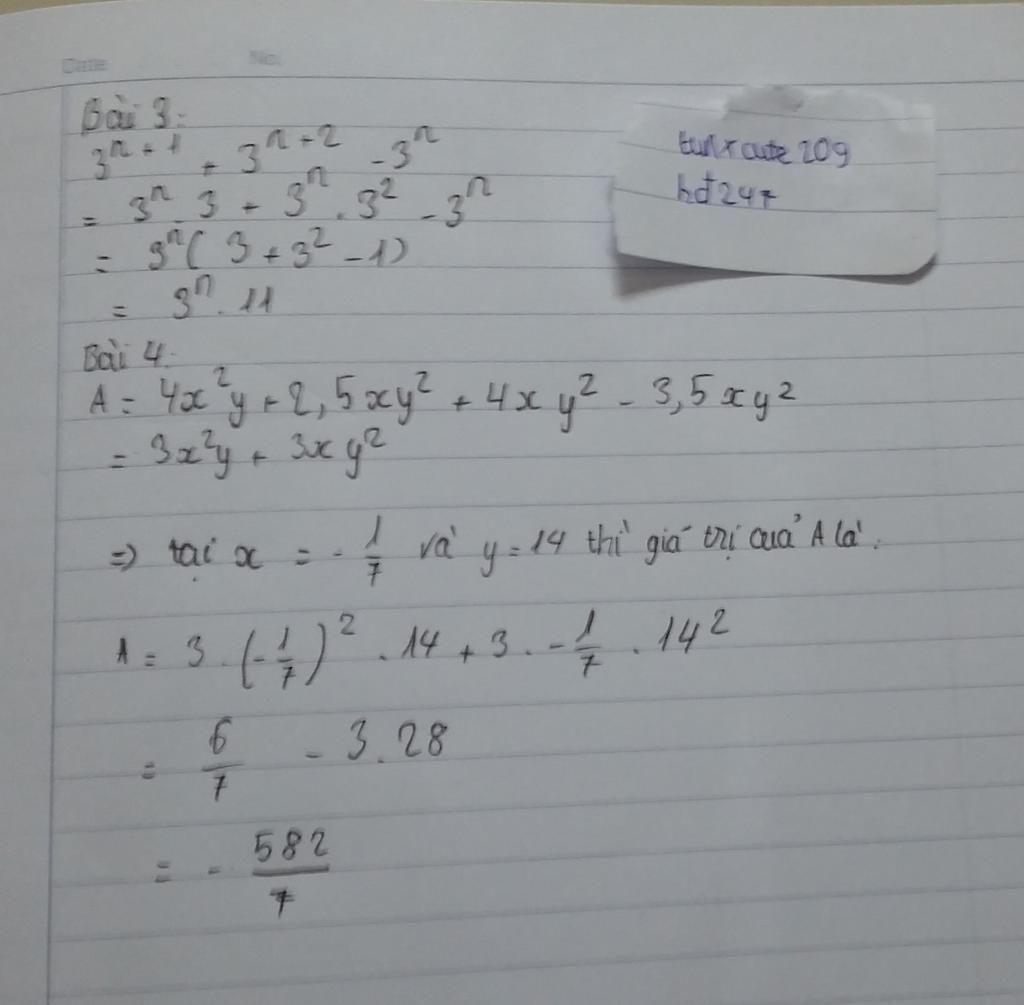 Date
No.
Bài 3:
3ⁿ⁺¹ + 3ⁿ⁺² - 3ⁿ
= 3ⁿ . 3 + 3ⁿ . 3² - 3ⁿ
= 3ⁿ( 3 + 3² - 1)
= 3ⁿ . 11
hd247
Bài 4:
A = 4x²y + 2,5xy² + 4xy² - 3,5xy²
= 3x²y + 3xy²
=> tại x = -1/7 và y = 14 thì giá trị của A là:
A = 3 . (-1/7)² . 14 + 3 . -1/7 . 14²
= 6/7 - 3.28
= - 582/7